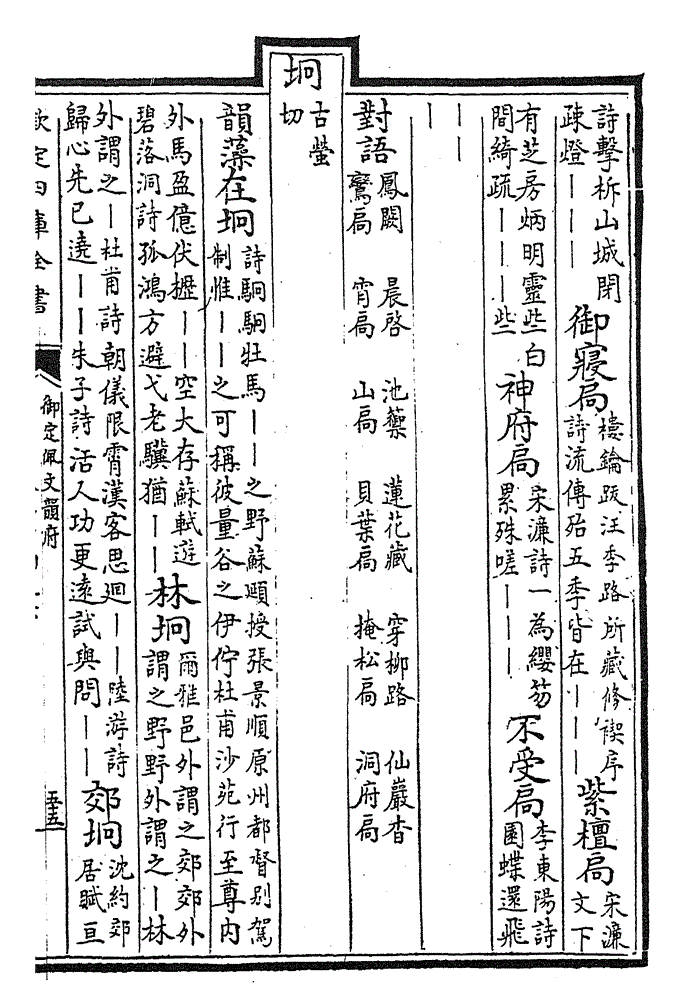 詩擊柝山城閉
疎燈｜｜｜
御寢扃
樓鑰跋汪季路所藏修禊序
詩流傳殆五季皆在｜｜｜
紫檀扃
宋濂
文下
有芝房炳明靈些白
間綺疏｜｜｜些
神府扃
宋濂詩一為纓笏
累殊嗟｜｜｜
不受扃
李東陽詩
園蝶還飛
｜｜
｜
對語
鳳闕 晨啓 池蘂 蓮花藏 穿柳路 仙巖杳
鸞扃 宵扃 山扃 貝葉扃 掩松扃 洞府扃
坰
古螢
切
韻藻
在坰
詩駉駉牡馬｜｜之野蘇頲授張景順原州都督别駕
制惟｜｜之可稱彼量谷之伊佇杜甫沙苑行至尊内
外馬盈億伏櫪｜｜空大存蘇軾遊
碧落洞詩孤鴻方避弋老驥猶｜｜
林坰
爾雅邑外謂之郊郊外
謂之野野外謂之｜林
外謂之｜杜甫詩朝儀限霄漢客思廻｜｜陸游詩
歸心先已遶｜｜朱子詩活人功更遠試與問｜｜
郊坰
沈約郊
居賦亘
欽定四庫全書
御定佩文韻府
五十五